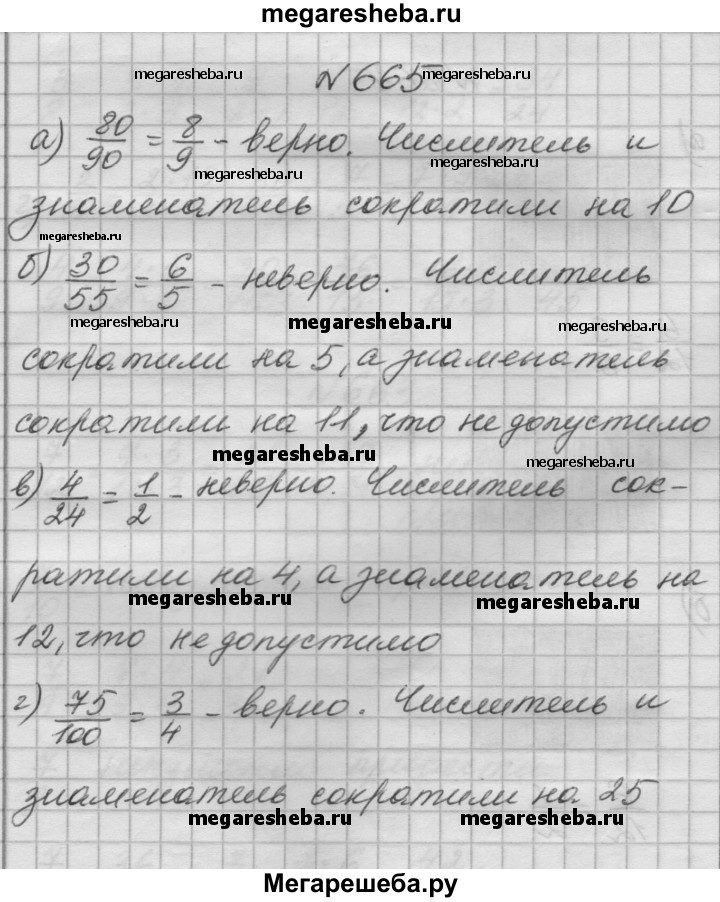 megaresheba.ru
№665
megaresheba.ru megaresheba.ru
а) 80/90 = 8/9 - верно. Числитель и
megaresheba.ru megaresheba.ru
знаменатель сократили на 10
megaresheba.ru
б) 30/55 = 6/5 - неверно. Числитель
megaresheba.ru megaresheba.ru megaresheba.ru
сократили на 5, а знаменатель
сократили на 11, что не допустимо
megaresheba.ru megaresheba.ru
в) 4/24 = 1/2 - неверно. Числитель сок-
ратили на 4, а знаменатель на
megaresheba.ru megaresheba.ru
12, что не допустимо
г) 75/100 = 3/4 - верно. Числитель и
знаменатель сократили на 25
megaresheba.ru megaresheba.ru
Мегарешеба.ру